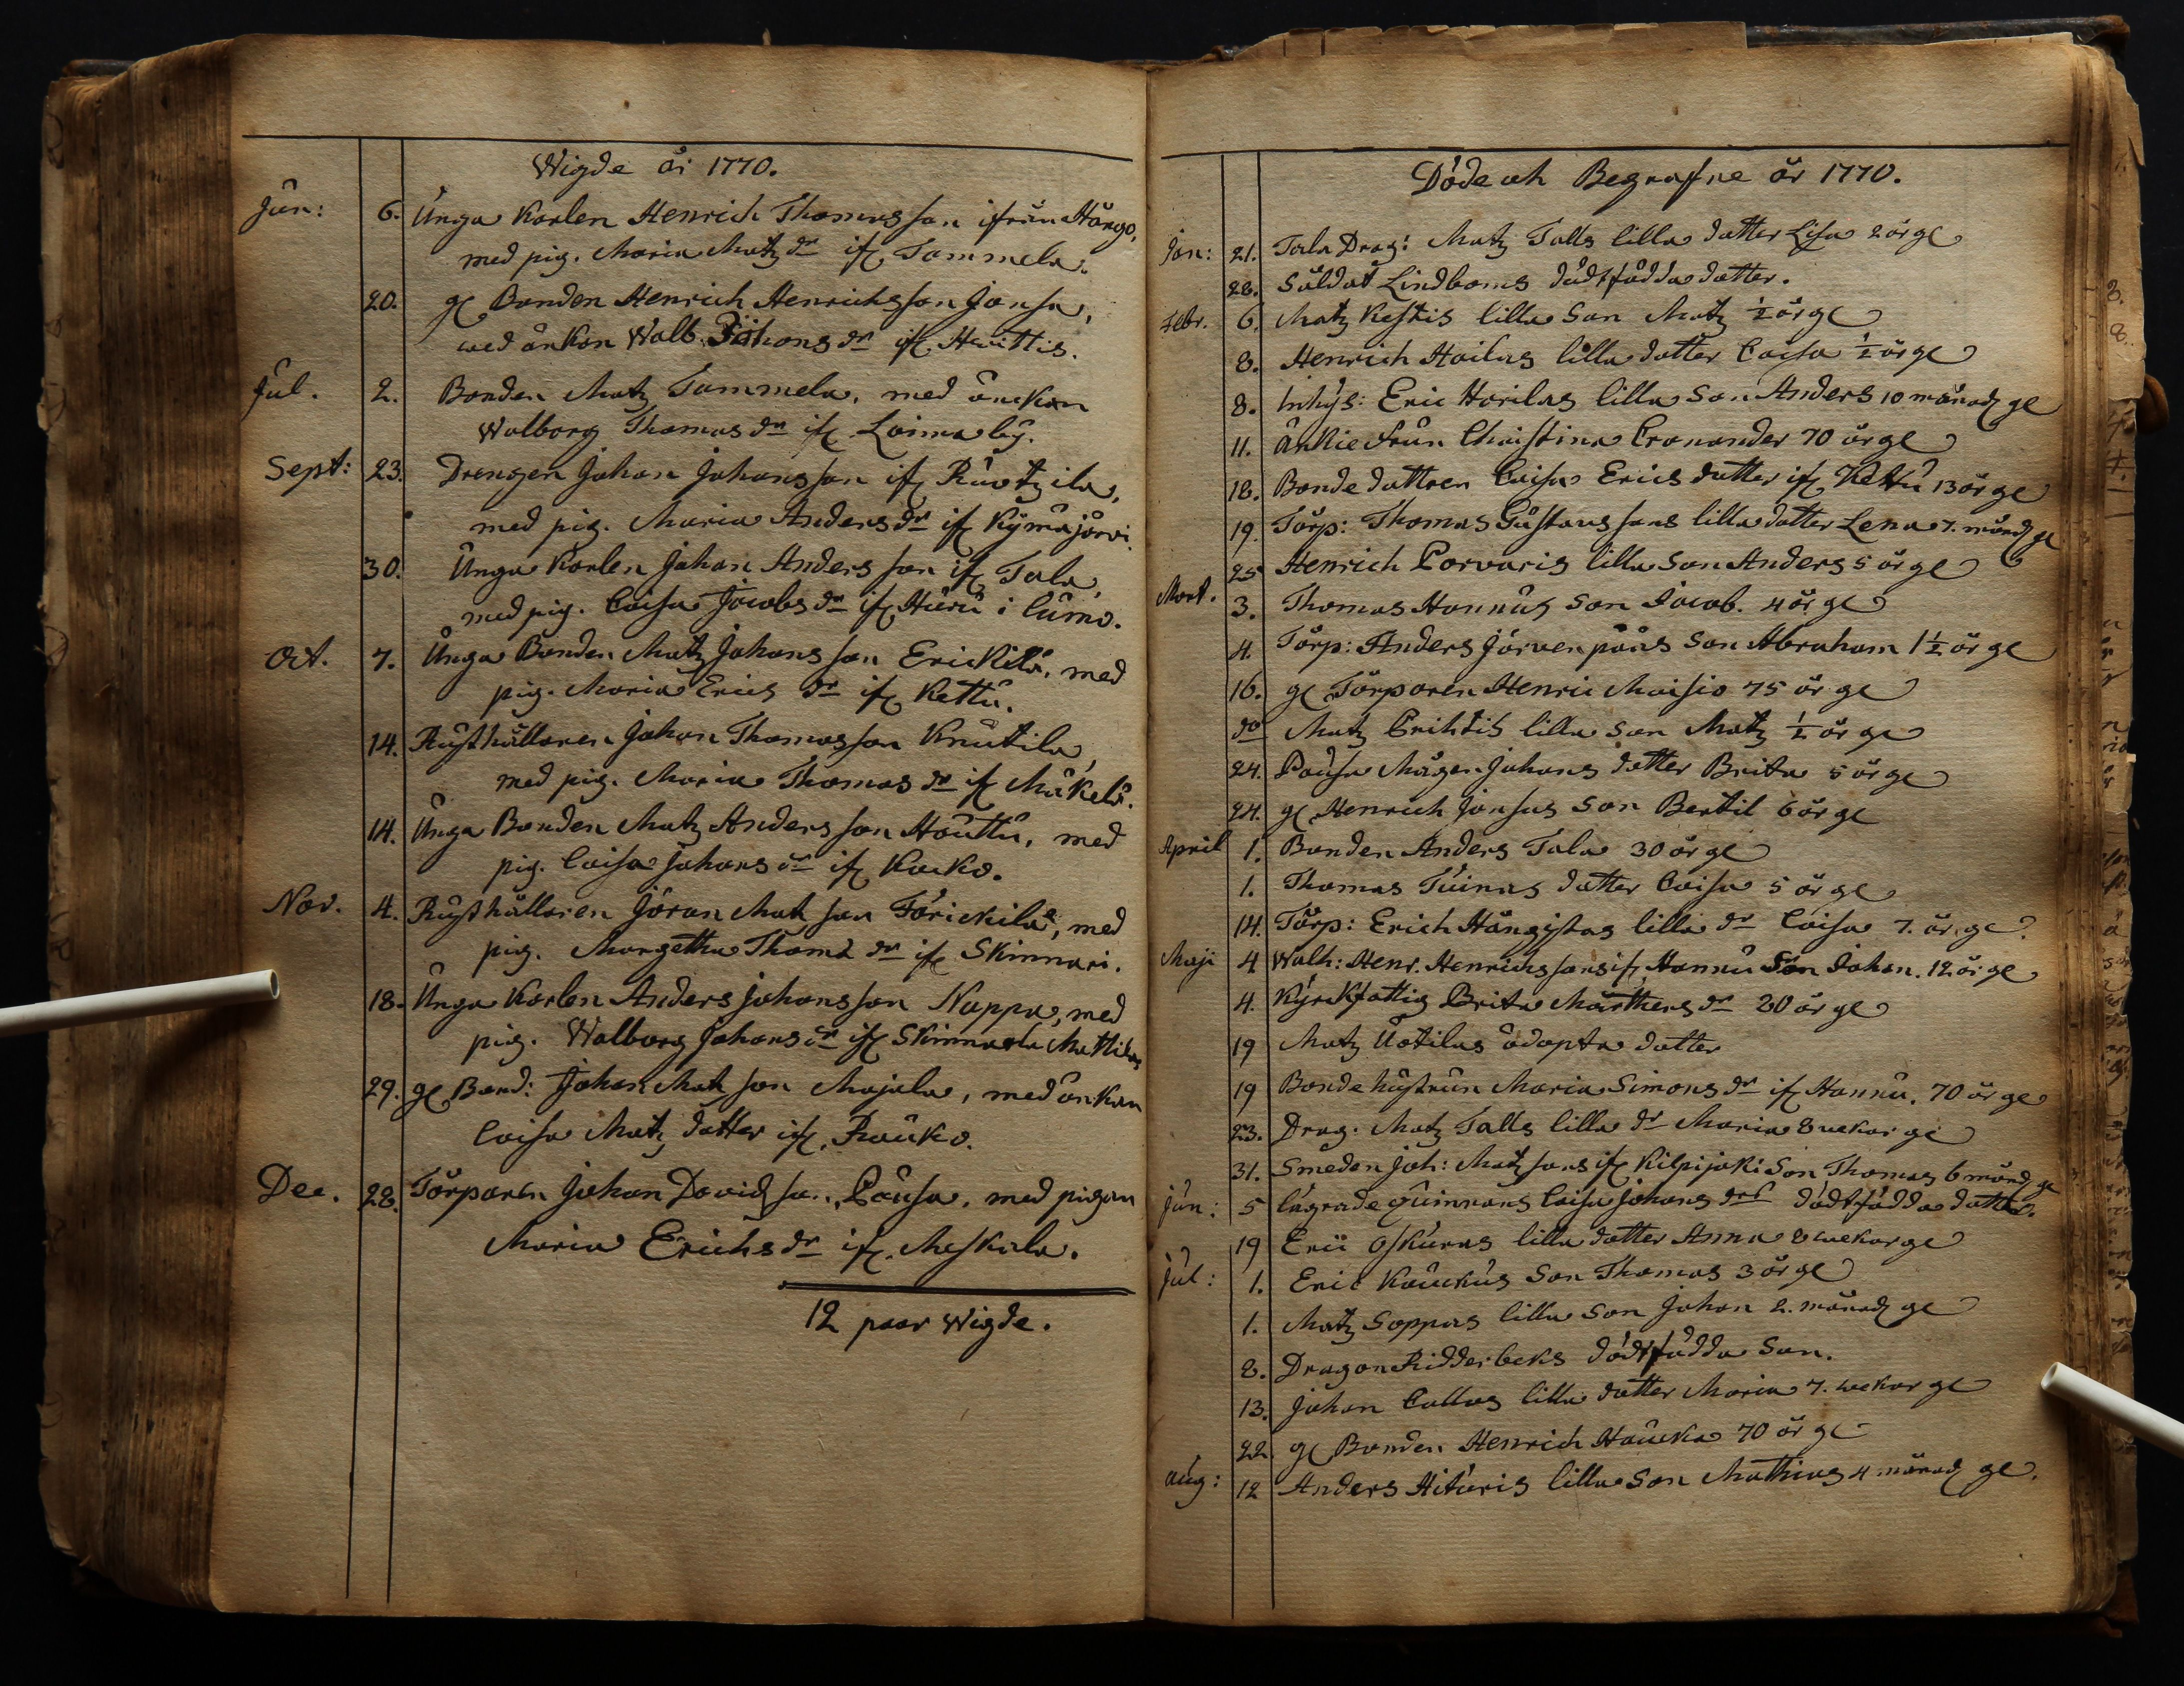 Wigde år 1770.
Jun: 6. Unga Karlen Henrich Thomasson ifrån Hängo,
med pig. Maria Matz dr if. Tammela.
20. gl Bonden Henrich Henrichsson Jansa,
med änkon Walb. Johans dr if. Huittis.
Jul. 2. Bonden Matz Tammela, med änckan
Walborg Thomas dr if. Loima by.
Sept: 23. Drengen Johan Johansson if.
med pig. Maria Anders dr if. Kÿmäjärvi.
30. Unga Karlen Johan Andersson if. Tala,
med pig. Caisa Jacobs dr if. Huru i
Oct. 7. Unga Bonden Matz Johansson Erickilä, med
pig. Maria Erics dr if. Kettu.
14. Rusthållaren Johan Thomasson Knutila,
med pig. Maria Thomas dr if. Mäkelä.
14. Unga Bonden Matz Andersson Houttu, med
pig. Caisa Johans dr if. Kacko.
Nov. 4. Rusthållaren Jöran Matsson med
pig. Margetha Thoma dr if. Skinnari.
18. Unga Karlen Anders Johansson Nappa, med
pig. Walborg Johans dr if.
29. gl Bond: Johan Matsson Majala, med änkan
Caisa Matz dotter if. Rauko.
Dec. 28. Torparen Johan Davidsson Pausa, med pigan
Maria Erichs dr if. Meskala.
12 paar Wigde.
Döde och Begrafne år 1770.
Jan: 21. Tala Drag: Matz Talls lilla dotter Lisa 2 år gl
28. Soldat Lindboms dödfödda dotter.
Febr. 6. Matz Kestis lilla Son Matz ½ år gl
8. Henrich Hoilas lilla dotter Caisa ½ år gl
8. Inhys: Eric Horilas lilla Son Anders 10 månad gl
11. Änkie Frun Christina Cronander 70 år gl
18. Bonde dottren Caisa Erics dotter if. Kettu 13 år gl
19. Torp: Thomas Gustavssons lilla dotter Lena 7. månd gl
25 Henrich Porvaris lilla Son Anders 5 år gl
Mart. 3. Thomas Hannus Son Jacob. 4 år gl
4. Torp: Anders Järvenpääs Son Abraham 1½ år gl
16. gl Torparen Henric Maisio 75 år gl
do Matz lilla Son Matz ½ år gl
24. Pausa Mågen Johans dotter Brita 5 år gl
24. gl Henrich Jansas Son Bertil 6 år gl
April 1. Bonden Anders Tala 30 år gl
1. Thomas Tuinas dotter Caisa 5 år gl
14. Torp: Erich Hängistas lilla dr Caisa 7. år gl
Maji 4 Walh: Henr. Henrichssons if. Hannu Son Johan. 12 år gl
4. Kyrckfattig Brita Mårthens dr 80 år gl
19 Matz Uotilas odöpta dotter
19 Bonde hustrun Maria Simons dr if. Hannu. 70 år gl
23. Drag. Matz Talls lilla dr Maria 8 wekor gl
31. Smeden Joh: Matssons if. Kilpijoki Son Thomas 6 månd gl
Jun: 5 Lägrade Quinnans Caisa Johans drs dödfödda dotter.
19 Eric Oskuras lilla dotter Anna 8 wekor gl
Jul: 1. Eric Kauckus Son Thomas 3 år gl
1. Matz Soppas lilla Son Johan 2. månad gl
8. Dragon Ridderbeks dödfödda Son.
13. Johan Callas lilla dotter Maria 7. wekor gl
22 gl Bonden Henrich Haucka 70 år gl
Aug: 12 Anders Hituris lilla Son Mathias 4 månad gl.